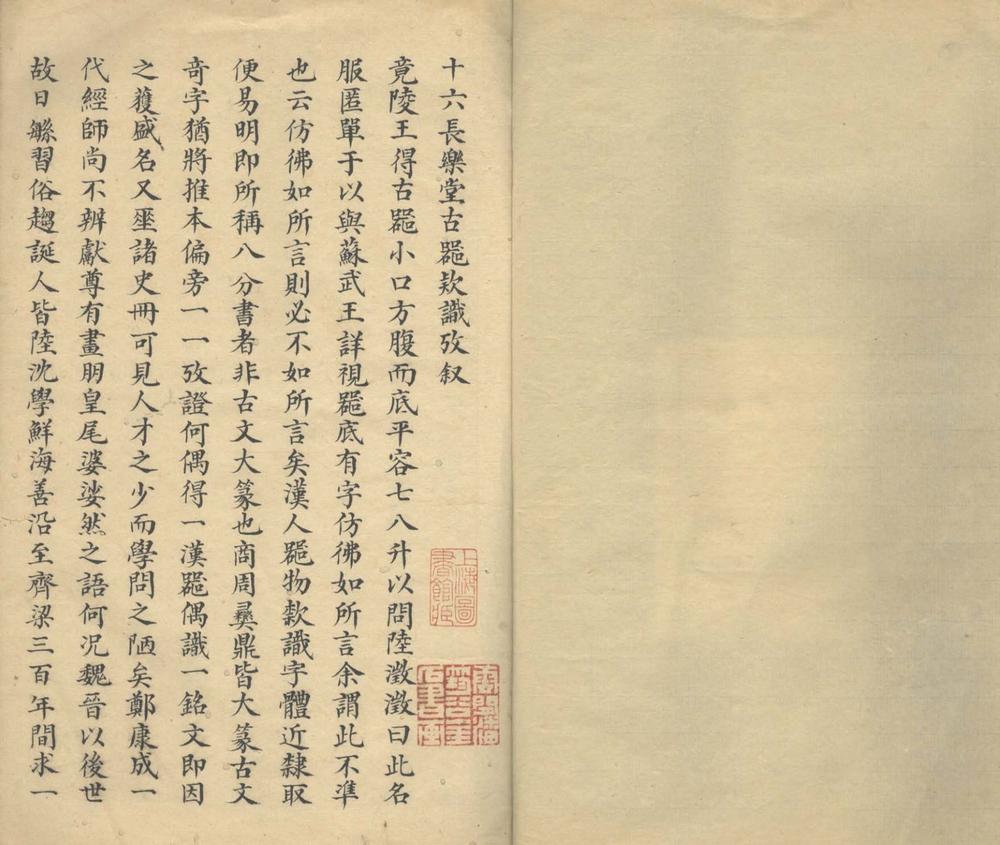 十六長樂堂古器欵識攷叙
竟陵王得古器小口方腹而底平容七八升以問陸澂澂曰此名
服匿單于以與蘇武王詳視器底有字仿彿如所言余謂此不準
也云仿彿如所言則必不如所言矣漢人器物欵識字體近隸取
便易明即所稱八分書者非古文大篆也商周彝鼎皆大篆古文
奇字猶將推本偏旁一一攷證何偶得一漢器偶識一銘文即因
之獲盛名又垩諸史冊可見人才之少而學問之陋矣鄭康成一
代經師尚不辨獻尊有畫朙皇尾婆娑然之語何况魏晉以後世
故日鯀習俗趨誕人皆陸沈學鮮海善沿至齊梁三百年間求一
上海圖
書館藏